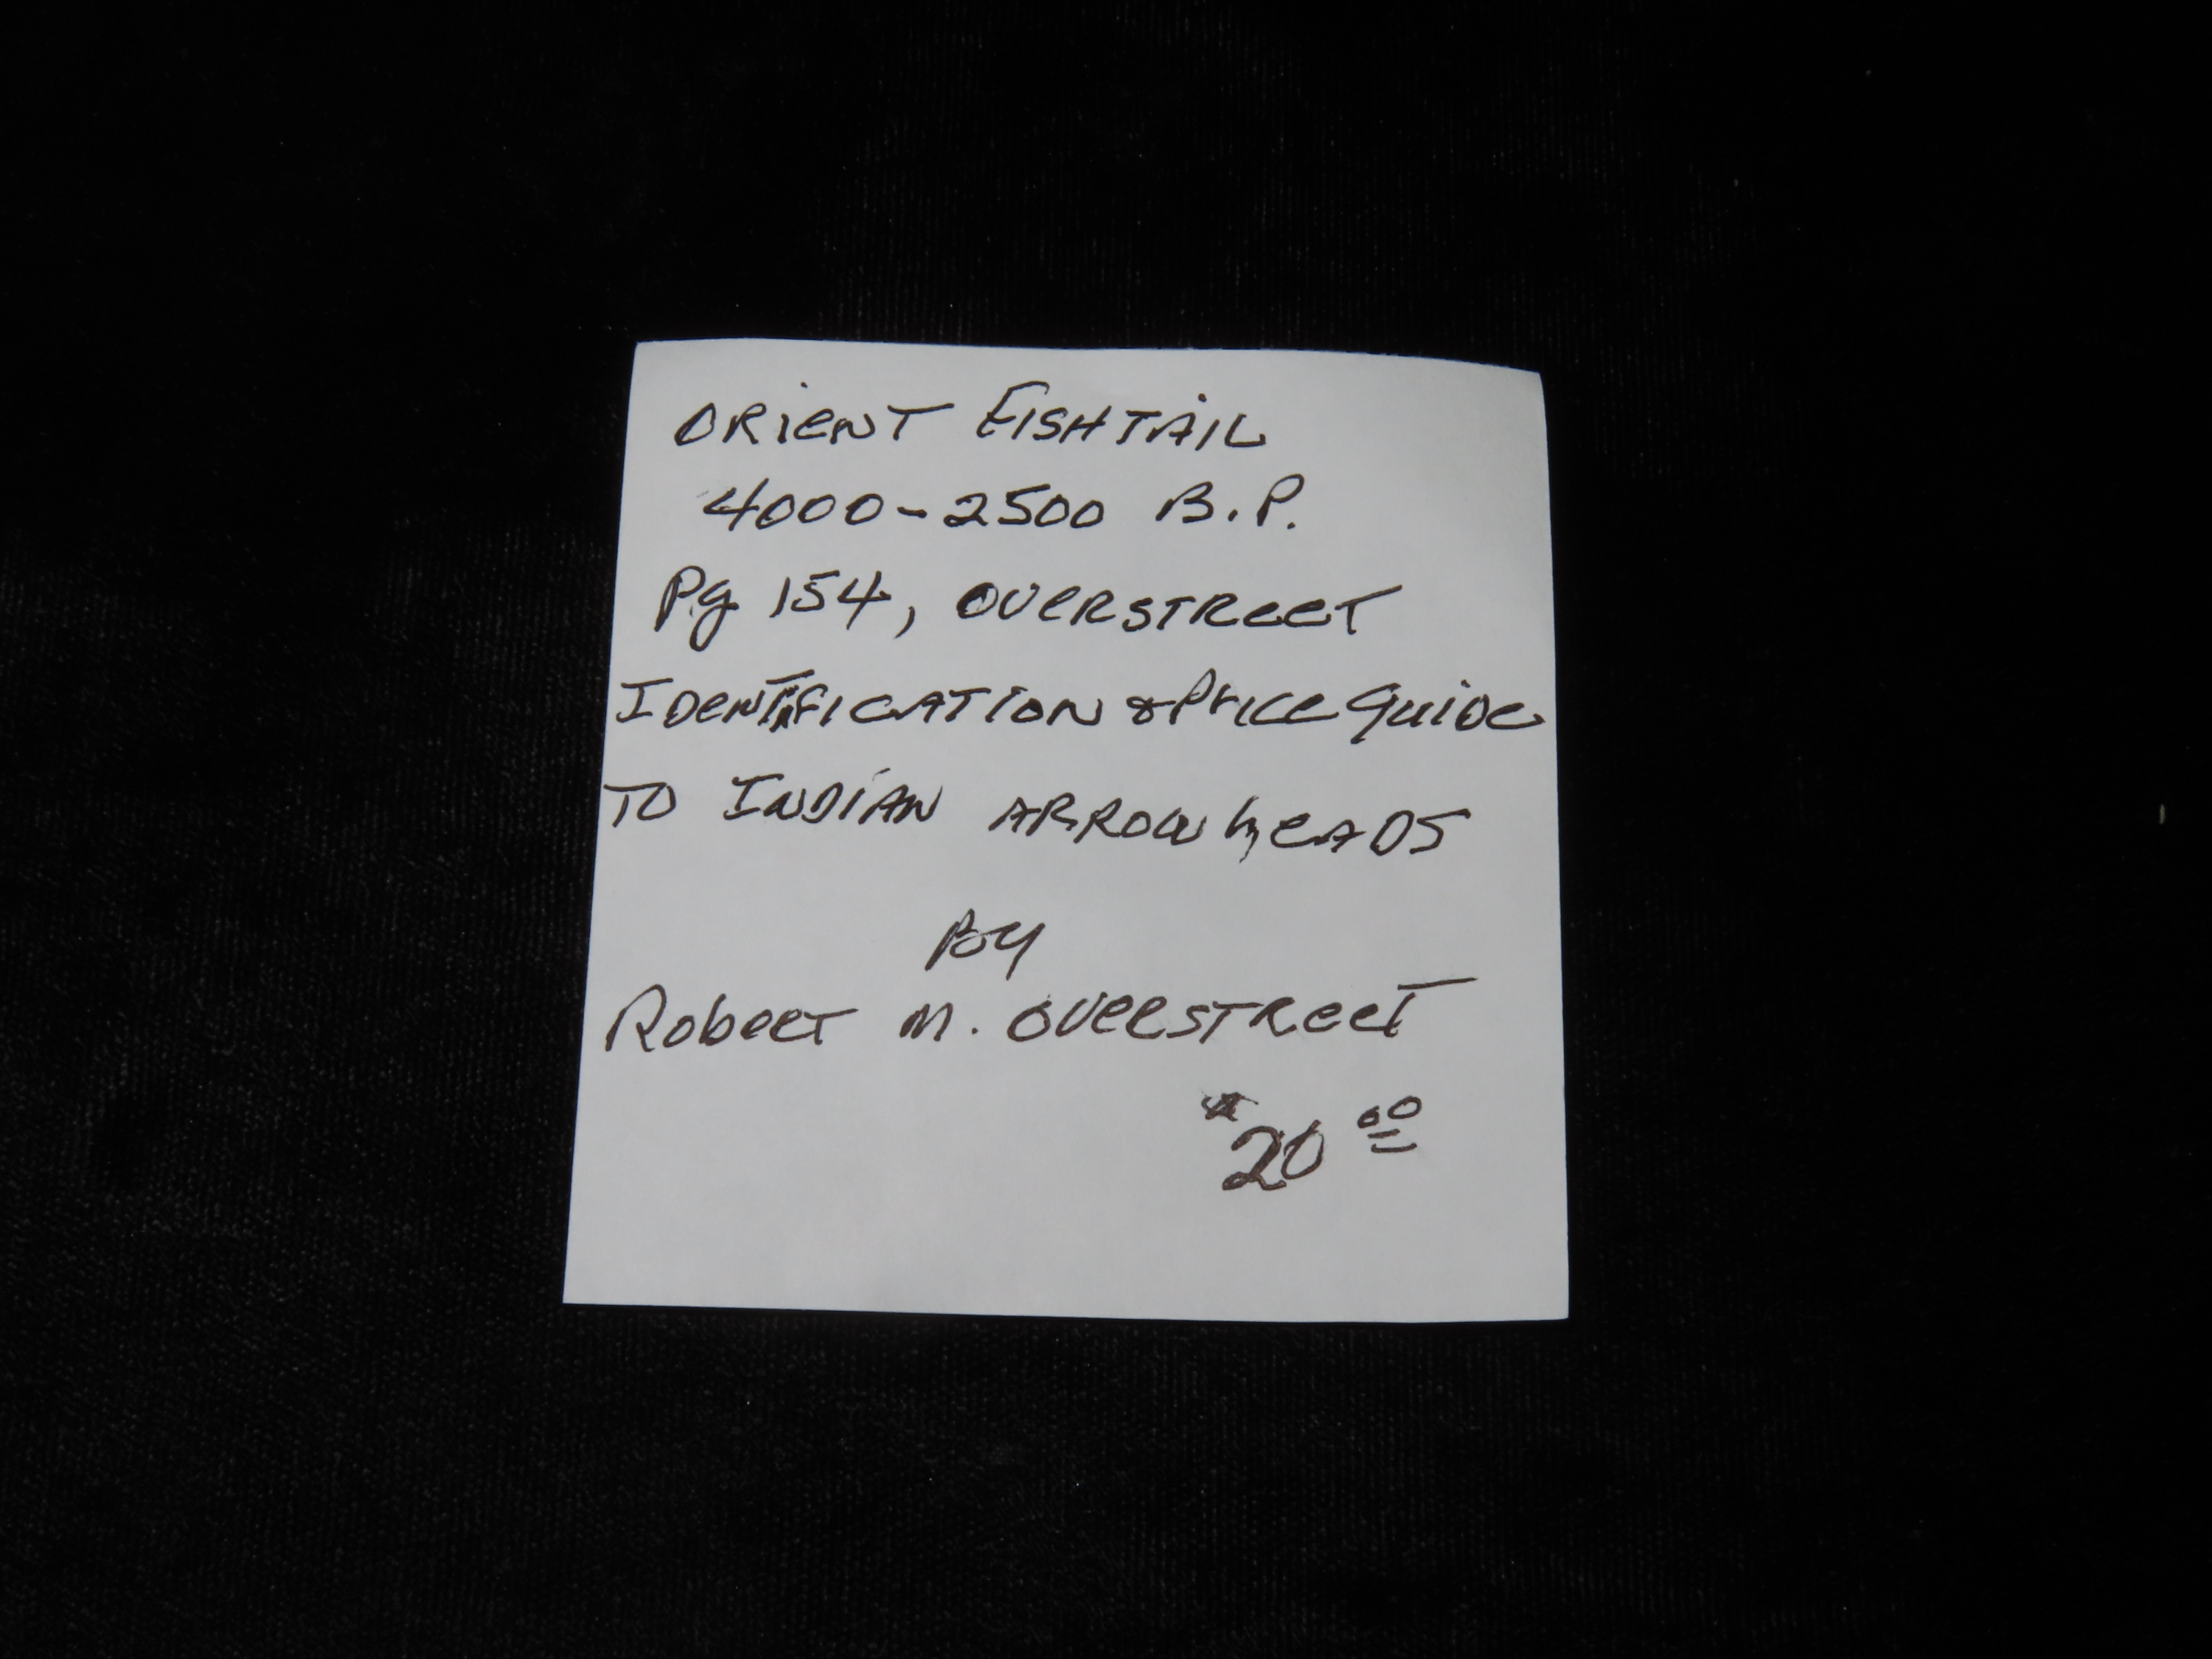 ORIENT FISHTAIL
4000-2500 B.P.
Pg 154, OVERSTREET
IDENTIFICATION & Price Guide
TO INDIAN ARROWheADS
By
Robert M. OVERSTREET
$20.00